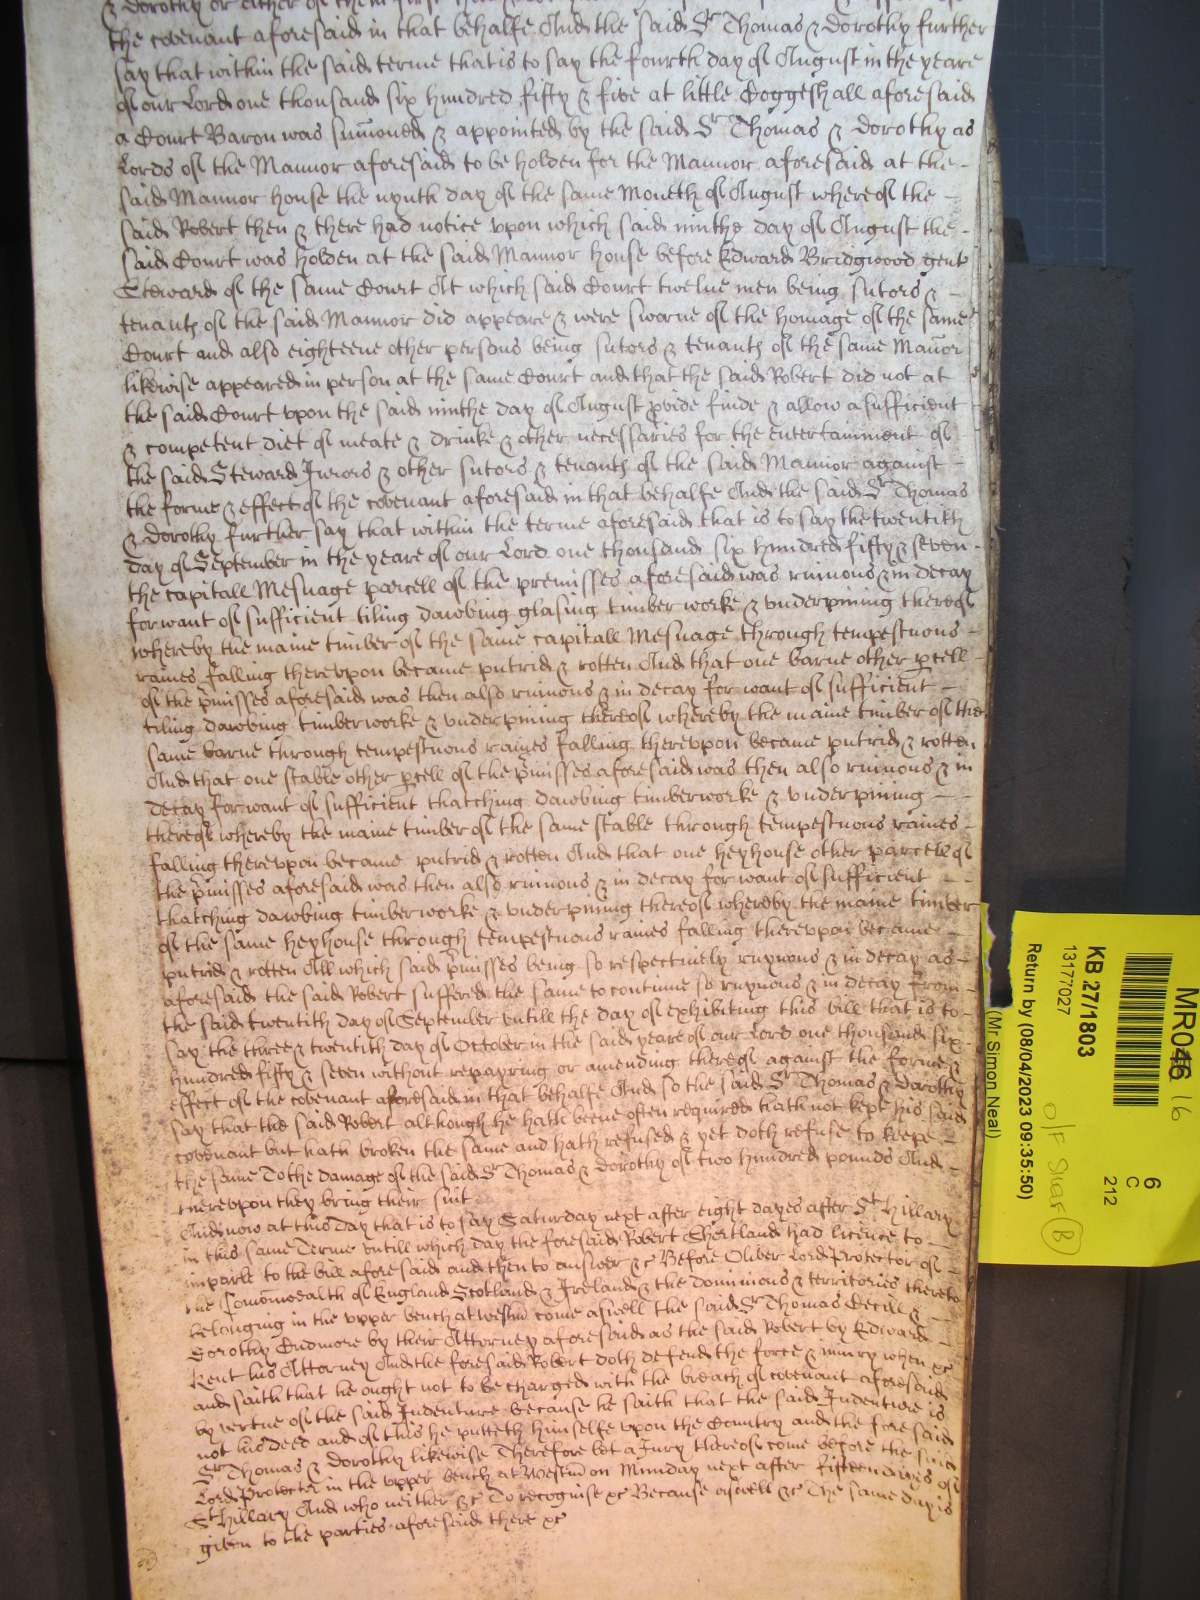 & Dorothy or either of them
the covenant aforesaid in that behalfe And the said Sr Thomas & Dorothy further
say that within the said terme that is to say the fourth day of August in the yeare
of our Lord one thousand six hundred fifty & five at little Coggeshall aforesaid
a Court Baron was sumoned & appointed by the said Sr Thomas & Dorothy as
Lords of the Mannor aforesaid to be holden for the Mannor aforesaid at the
said Mannor house the nynth day of the same Moneth of August whereof the
said Robert then & there had notice upon which said ninthe day of August the
said Court was holden at the said Mannor house before Edward Bridgwood gent
Steward of the same Court At which said Court twelue men being sutors &
tenants of the said Mannor did appeare & were sworne of the homage of the same
Court and also eighteene other persons being sutors & tenants of the same Manor
likewise appeared in person at the same Court and that the said Robert did not at
the said Court upon the said ninthe day of August pvide finde & allow a sufficient
& competent diet of meate & drinke & other necessaries for the entertainment of
the said Steward Jurors & other sutors & tenants of the said Mannor against
the forme & effect of the covenant aforesaid in that behalfe And the said Sr Thomas
& Dorothy further say that within the terme aforesaid that is to say the twentith
day of September in the yeare of our Lord one thousand six hundred fifty & seven
the capitall Mesuage parcell of the premisses aforesaid was ruinous & in decay
for want of sufficient tiling dawbing glasing timber worke & underpining thereof
whereby the maine timber of the same capitall Mesuage through tempestuous
raines falling thereupon became putrid & rotten And that one barne other pcell
of the pmisses aforesaid was then also ruinous & in decay for want of sufficient
tiling dawbing timberworke & underpining thereof whereby the maine timber of the
same barne through tempestuous raines falling thereupon became putrid & rotten
And that one stable other pcell of the pmisses aforesaid was then also ruinous & in
decay for want of sufficient thatching dawbing timberworke & underpining
thereof whereby the maine timber of the same stable through tempestuous raines
falling thereupon became putrid & rotten And that one heyhouse other parcell of
the pmisses aforesaid was then also ruinous & in decay for want of sufficient
thatching dawbing timberworke & underpining thereof whereby the maine timber
of the same heyhouse through tempestuous raines falling thereupon became
putrid & rotten All which said pmisses being so respectively ruynous & in decay as
aforesaid the said Robert suffered the same to continue so ruynous & in decay from
the said twentith day of September untill the day of exhibiting this bill that is to
say the three & twentith day of October in the said yeare of our Lord one thousand six
hundred fifty & seven without repayring or amending thereof against the forme &
effect of the covenant aforesaid in that behalfe And so the said Sr Thomas & Dorothy
say that the said Robert although he hath beene often required hath not kept his said
covenant but hath broken the same and hath refused & yet doth refuse to keepe
the same To the damage of the said Sr Thomas & Dorothy of two hundred pounds And
thereupon they bring their suit
And now at this day that is to say Saturday next after eight dayes after St Hillary
in this same Terme untill which day the foresaid Robert Shortland had licence to
imparle to the bill aforesaid and then to answer &c Before Oliver Lord Protector of
the Comonwealth of England Scotland & Ireland & the dominions & territories thereto
belonging in the upper bench at Westm come aswell the said Sr Thomas Cecill &
Dorothy Cudmore by their Attorney aforesaid as the said Robert by Edward
Kent his Attorney And the foresaid Robert doth defend the force & iniury when &c
and saith that he ought not to be charged with the breach of covenant aforesaid
by vertue of the said Indenture because he saith that the said Indenture is
not his deed and of this he putteth himselfe upon the Country and the foresaid
Sr Thomas & Dorothy likewise Therefore let a Jury thereof come before the said
Lord Protector in the upper bench at Westm on Munday next after fifteen dayes of
St Hillary And who neither &c To recognise &c Because aswell &c The same day is
given to the parties aforesaid there &c
MR046 16
6
C
212
KB 27/1803
13177027
Return by (08/04/2023 09:35:50)
(Mr Simon Neal)
O/F Shar B